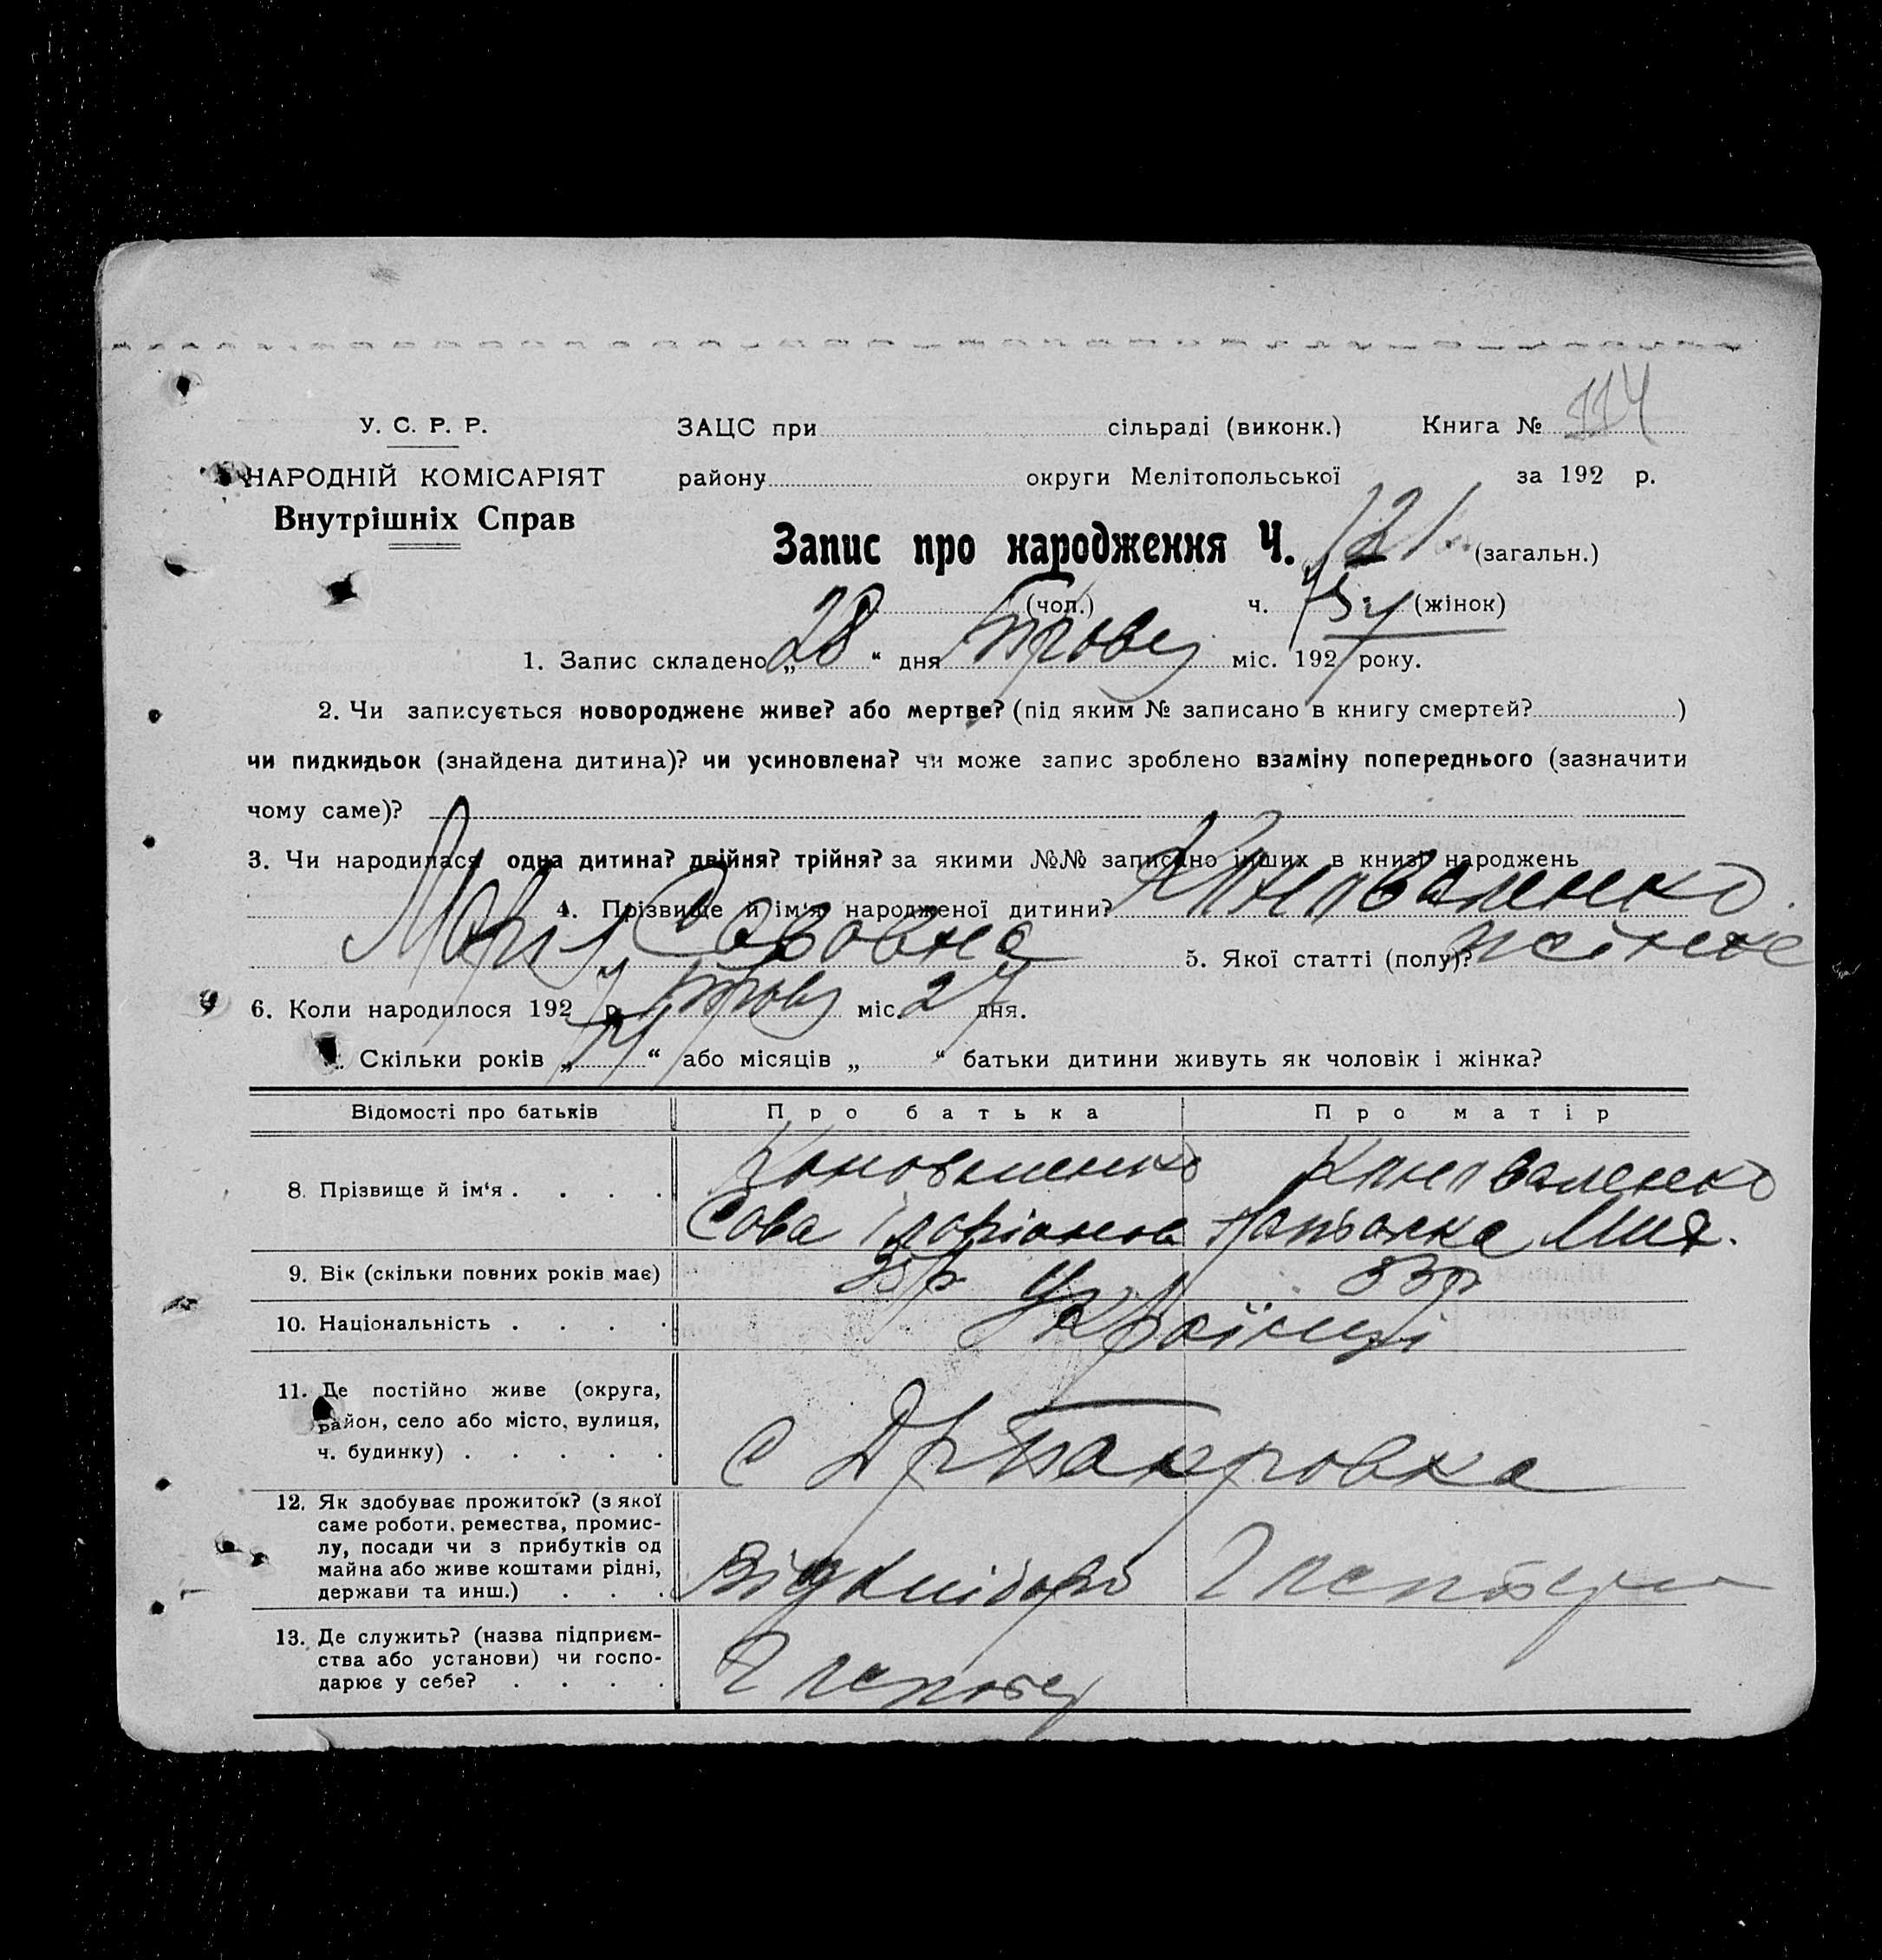 114
У. С. Р. Р. ЗАЦС при сільраді (виконк.) Книга №
НАРОДНІЙ КОМІСАРІЯТ району округи Мелітопольської за 192 р.
Внутрішніх Справ
Запис про народження Ч. 121 (загальн.)
(чол.) ч. (жінок)
1. Запис складено „28“ дня Травня міс. 1927 року.
2. Чи записується новороджене живе? або мертве? (під яким № записано в книгу смертей? )
чи пидкидьок (знайдена дитина)? чи усиновлена? чи може запис зроблено взаміну попереднього (зазначити
чому саме)?
3. Чи народилася одна дитина? двійня? трійня? за якими №№ записано інших в книзі народжень
4. Прізвище й ім‘я народженої дитини? Коноваленко
Марія Савовна 5. Якої статті (полу)? жіноче
6. Коли народилося 1927 р. Травня міс. 27 дня.
Скільки років „14“ або місяців „ “ батьки дитини живуть як чоловік і жінка?
Відомості про батьків Про батька Про матір
8. Прізвище й ім‘я . . . . Коноваленко Коноваленко
Сава
9. Вік (скільки повних років має) 35р 33р
10. Національність . . . . Українці
11. Де постійно живе (округа,
район, село або місто, вулиця,
ч. будинку) . . . . . с
12. Як здобуває прожиток? (з якої
саме роботи, ремества, промис-
лу, посади чи з прибутків од
майна або живе коштами рідні,
держави та инш.) . . . від хлібороб
13. Де служить? (назва підприєм-
ства або установи) чи госпо-
дарює у себе? . . . .